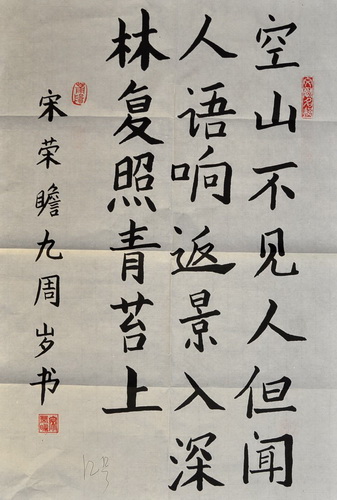 空山不见人但闻
人语响返景入深
林复照青苔上
宋荣瞻九周岁书
12号